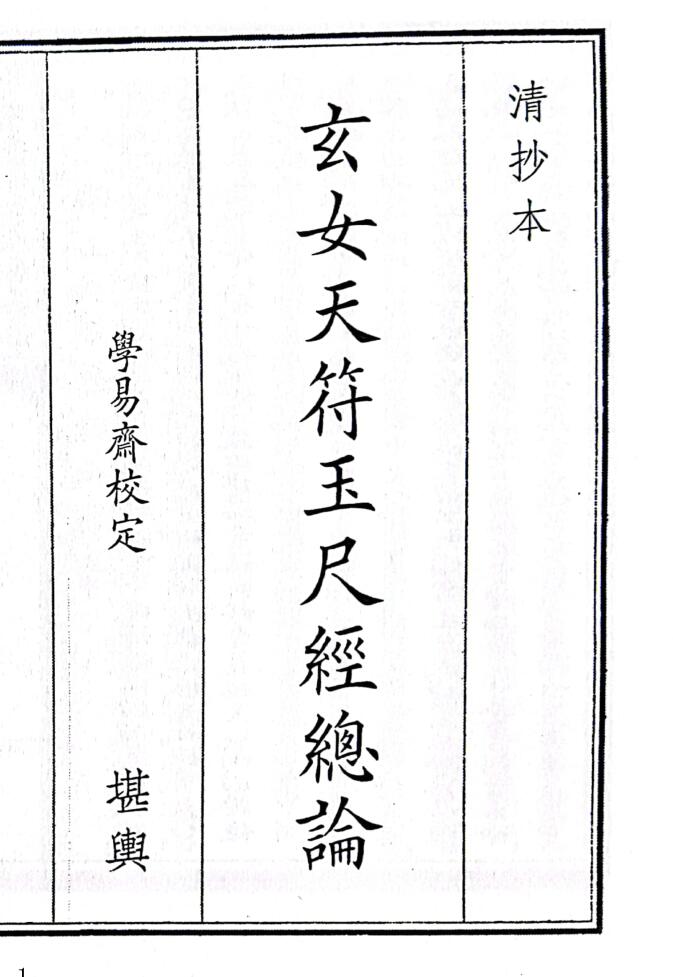 清抄本
玄女天符玉尺經總論
學易齋校定
堪輿
1